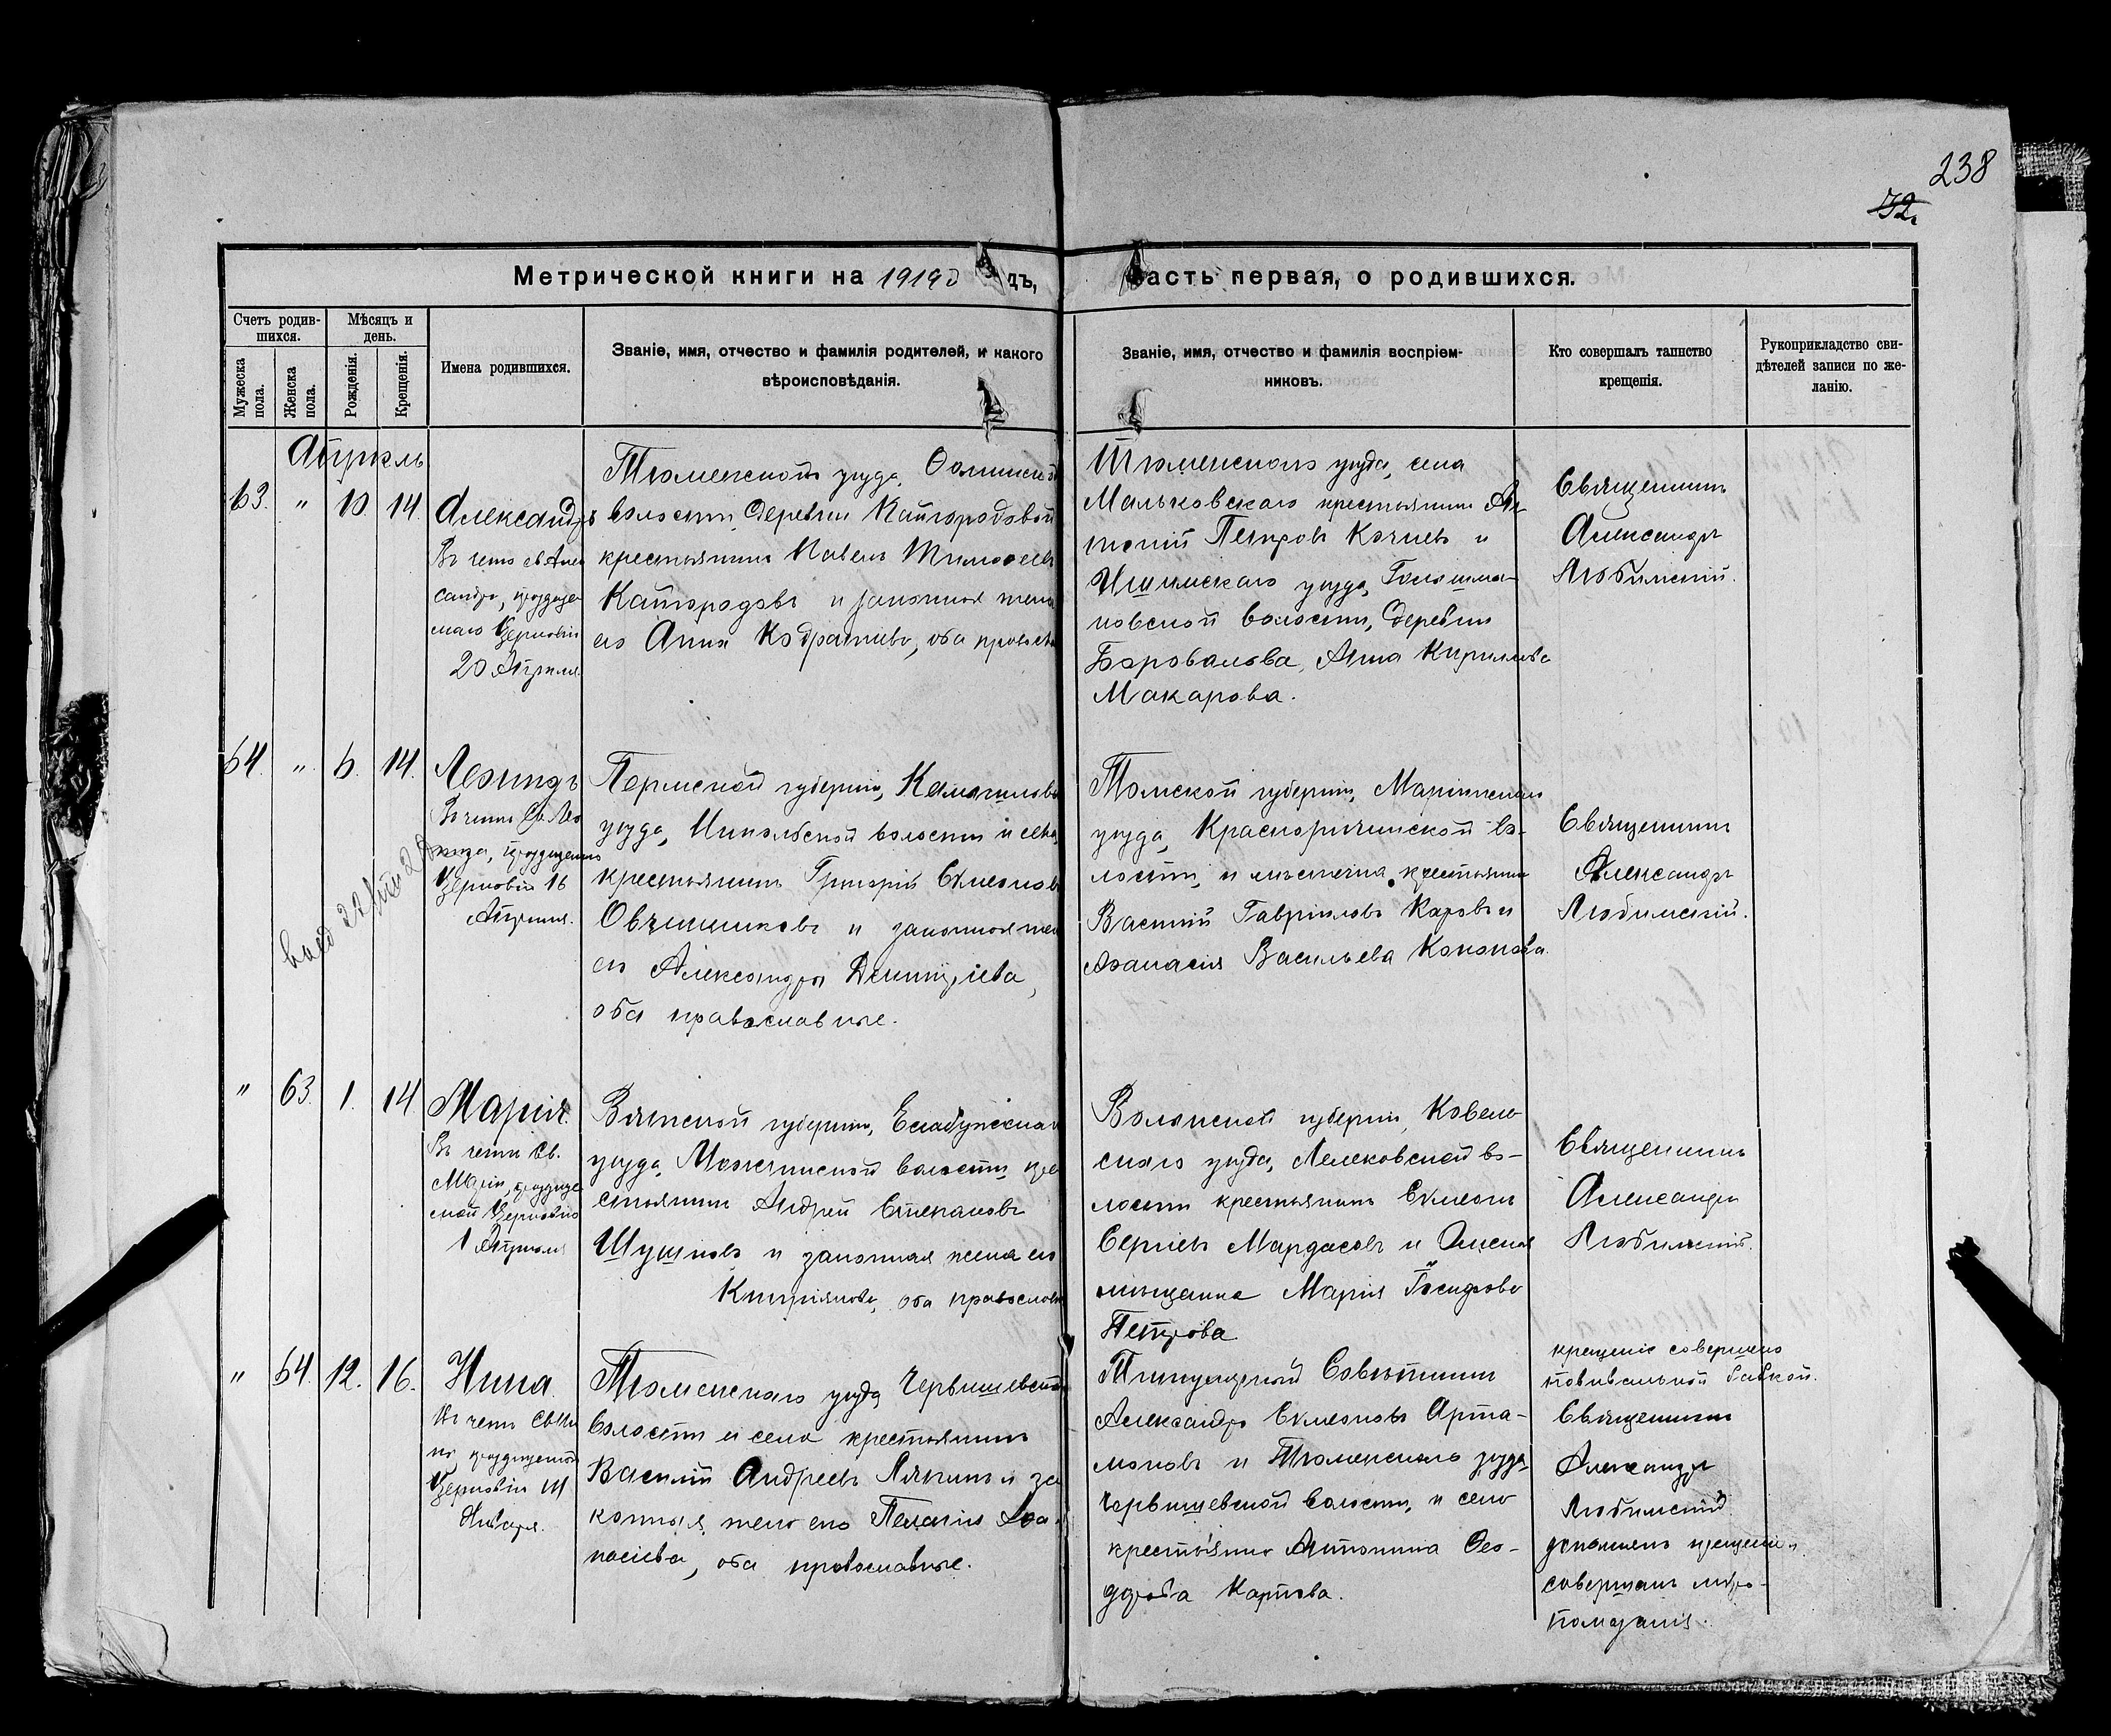 238
72
Метрической книги на 1919 дъ, часть первая, о родившихся.
Счетъ родив-
шихся.
Мѣсяцъ и
день.
Мужеска
пола.
Женска
пола.
Рожденія.
Крещенія.
Имена родившихся.
Званіе, имя, отчество и фамилія родителей, и какого
вѣроисповѣданія.
Званіе, имя, отчество и фамилія воспріем-
никовъ.
Кто совершалъ таинство
крещенія.
Рукоприкладство сви-
дѣтелей записи по же-
ланію.
Апрѣль
63. " 10. 14.
Александръ
Въ честь св. Алек
сандра, празднуе
маго Церковію
20 Апрѣля.
Тюменскаго уѣзда,
волости, деревни Кайгородовой
крестьянинъ Павелъ Тимоѳеевъ
Кайгородовъ и законная жена
его Анна Кодратіева, оба правосла
Тюменскаго уѣзда, села
Мальковскаго крестьянинъ Ан-
тоній Петровъ Кочневъ и
Ишимскаго уѣзда, Голышма-
новской волости, деревни
Боровлева, Анна Кирилова
Макарова.
Священникъ
Александръ
Любимскій.
64. " 6. 14.
Леонидъ
Въ честь Св. Лео
нида, празднуемаго
Церковію 16
Апрѣля.
Пермской губерніи, Камышлов
уѣзда, Никольской волости и села,
крестьянинъ Григорій Сѵмеоновъ
Овчинниковъ и законная жена
его Александра Димитріева,
оба православные.
Томской губерніи, Маріинскаго
уѣзда, Краснорѣчинской во-
лости, и мѣстечка, крестьянинъ
Василій Гавріиловъ Каровъ и
Аѳанасія Васильева Кононова.
Священникъ
Александръ
Любимскій.
" 63. 1. 14
Марія.
Въ честь Св.
Маріи, празднуе
мой Церковію
1 Апрѣля
Вятской губерніи, Елабужскаго
уѣзда, Можгинской волости, кре
стьянинъ Андрей Стефановъ
Шушковъ и законная жена его
Кипріянова, оба православн
Волынской губерніи, Ковель
скаго уѣзда, во-
лости крестьянинъ Сѵмеонъ
Сергіевъ Мардасовъ и Омская
мѣщанка Марія Іосифова
Петрова
Священникъ
Александръ
Любимскій.
" 64. 12. 16.
Нина.
Въ честь Св. Ни
ны, празднуемой
Церковію 14
Января.
Тюменскаго уѣзда Червишевской
волости и села крестьянинъ
Василій Андреевъ Лякинъ и за
конная жена его Пелагія Аѳа-
насіева, оба православные.
Титулярный Совѣтникъ
Александръ Сѵмеоновъ Арта-
моновъ и Тюменскаго уѣзда,
Червишевской волости, и села
крестьянка Антонина Ѳео-
дорова Карпова.
крещеніе совершено
повивальной бабкой.
Священникъ
Александръ
Любимскій
дополнилъ крещеніе и
совершилъ мѵро-
помазаніе.